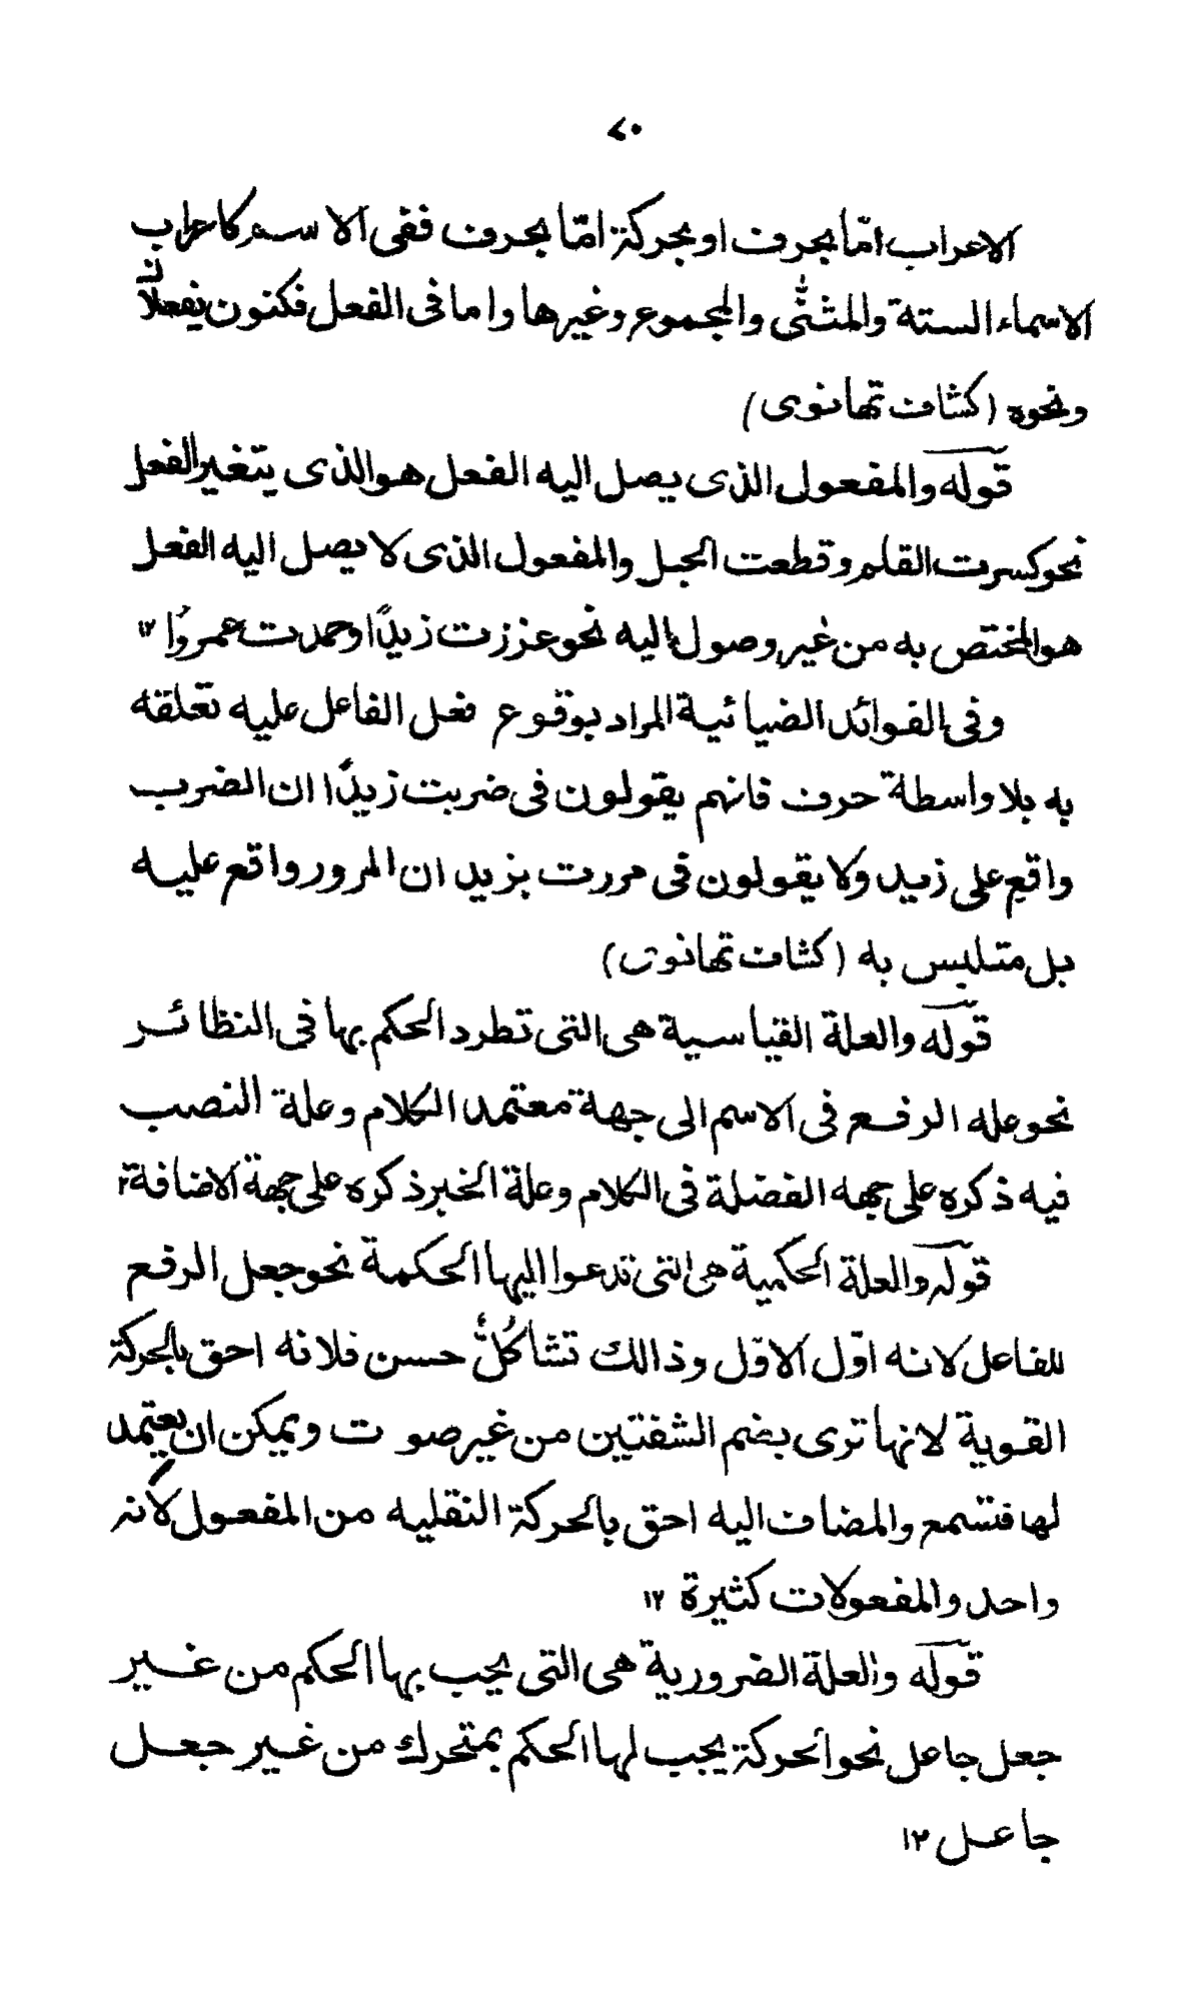 ٧٠
الاعراب امّا بحرف او بحركة امّا بحرف ففى الاسم كاعراب
الاسماء الستة والمثنّٰى والمجموع وغيرها واما فى الفعل فكنون يفعلان
ونحوه (كشاف تهانوى)
قوله والمفعول الذى يصل اليه الفعل هو الذى يتغير الفعل
نحو كسرت القلم وقطعت الحبل والمفعول الذى لا يصل اليه الفعل
هو المختص به من غير وصول اليه نحو عززت زيدًا وحمدت عمروًا ١٢
وفى الفوائد الضيائية المراد بوقوع فعل الفاعل عليه تعلقه
به بلا واسطة حرف فانهم يقولون فى ضربت زيدًا ان الضرب
واقع على زيد ولا يقولون فى مررت بزيد ان المرور واقع عليه
بل متلبس به (كشاف تهانوى)
قوله والعلة القياسية هى التى تطرد الحكم بها فى النظائر
نحو عله الرفع فى الاسم الى جهة معتمد الكلام وعلة النصب
فيه ذكره على جهه الفضلة فى الكلام وعلة الخبر ذكره على جهة الاضافة
قوله والعلة الحكمية هى التى تدعوا اليها الحكمة نحو جعل الرفع
للفاعل لانه اوّل الاوّل وذالك تشاكُلٌ حسن فلانه احق بالحركة
القوية لانها ترى بضم الشفتين من غير صوت ويمكن ان يعتمد
لها فتسمع والمضاف اليه احق بالحركة النقليه من المفعول لأنه
واحد والمفعولات كثيرة ١٢
قوله والعلة الضرورية هى التى يجب بها الحكم من غير
جعل جاعل نحو الحركة يجب لها الحكم بمتحرك من غير جعل
جاعل ١٢